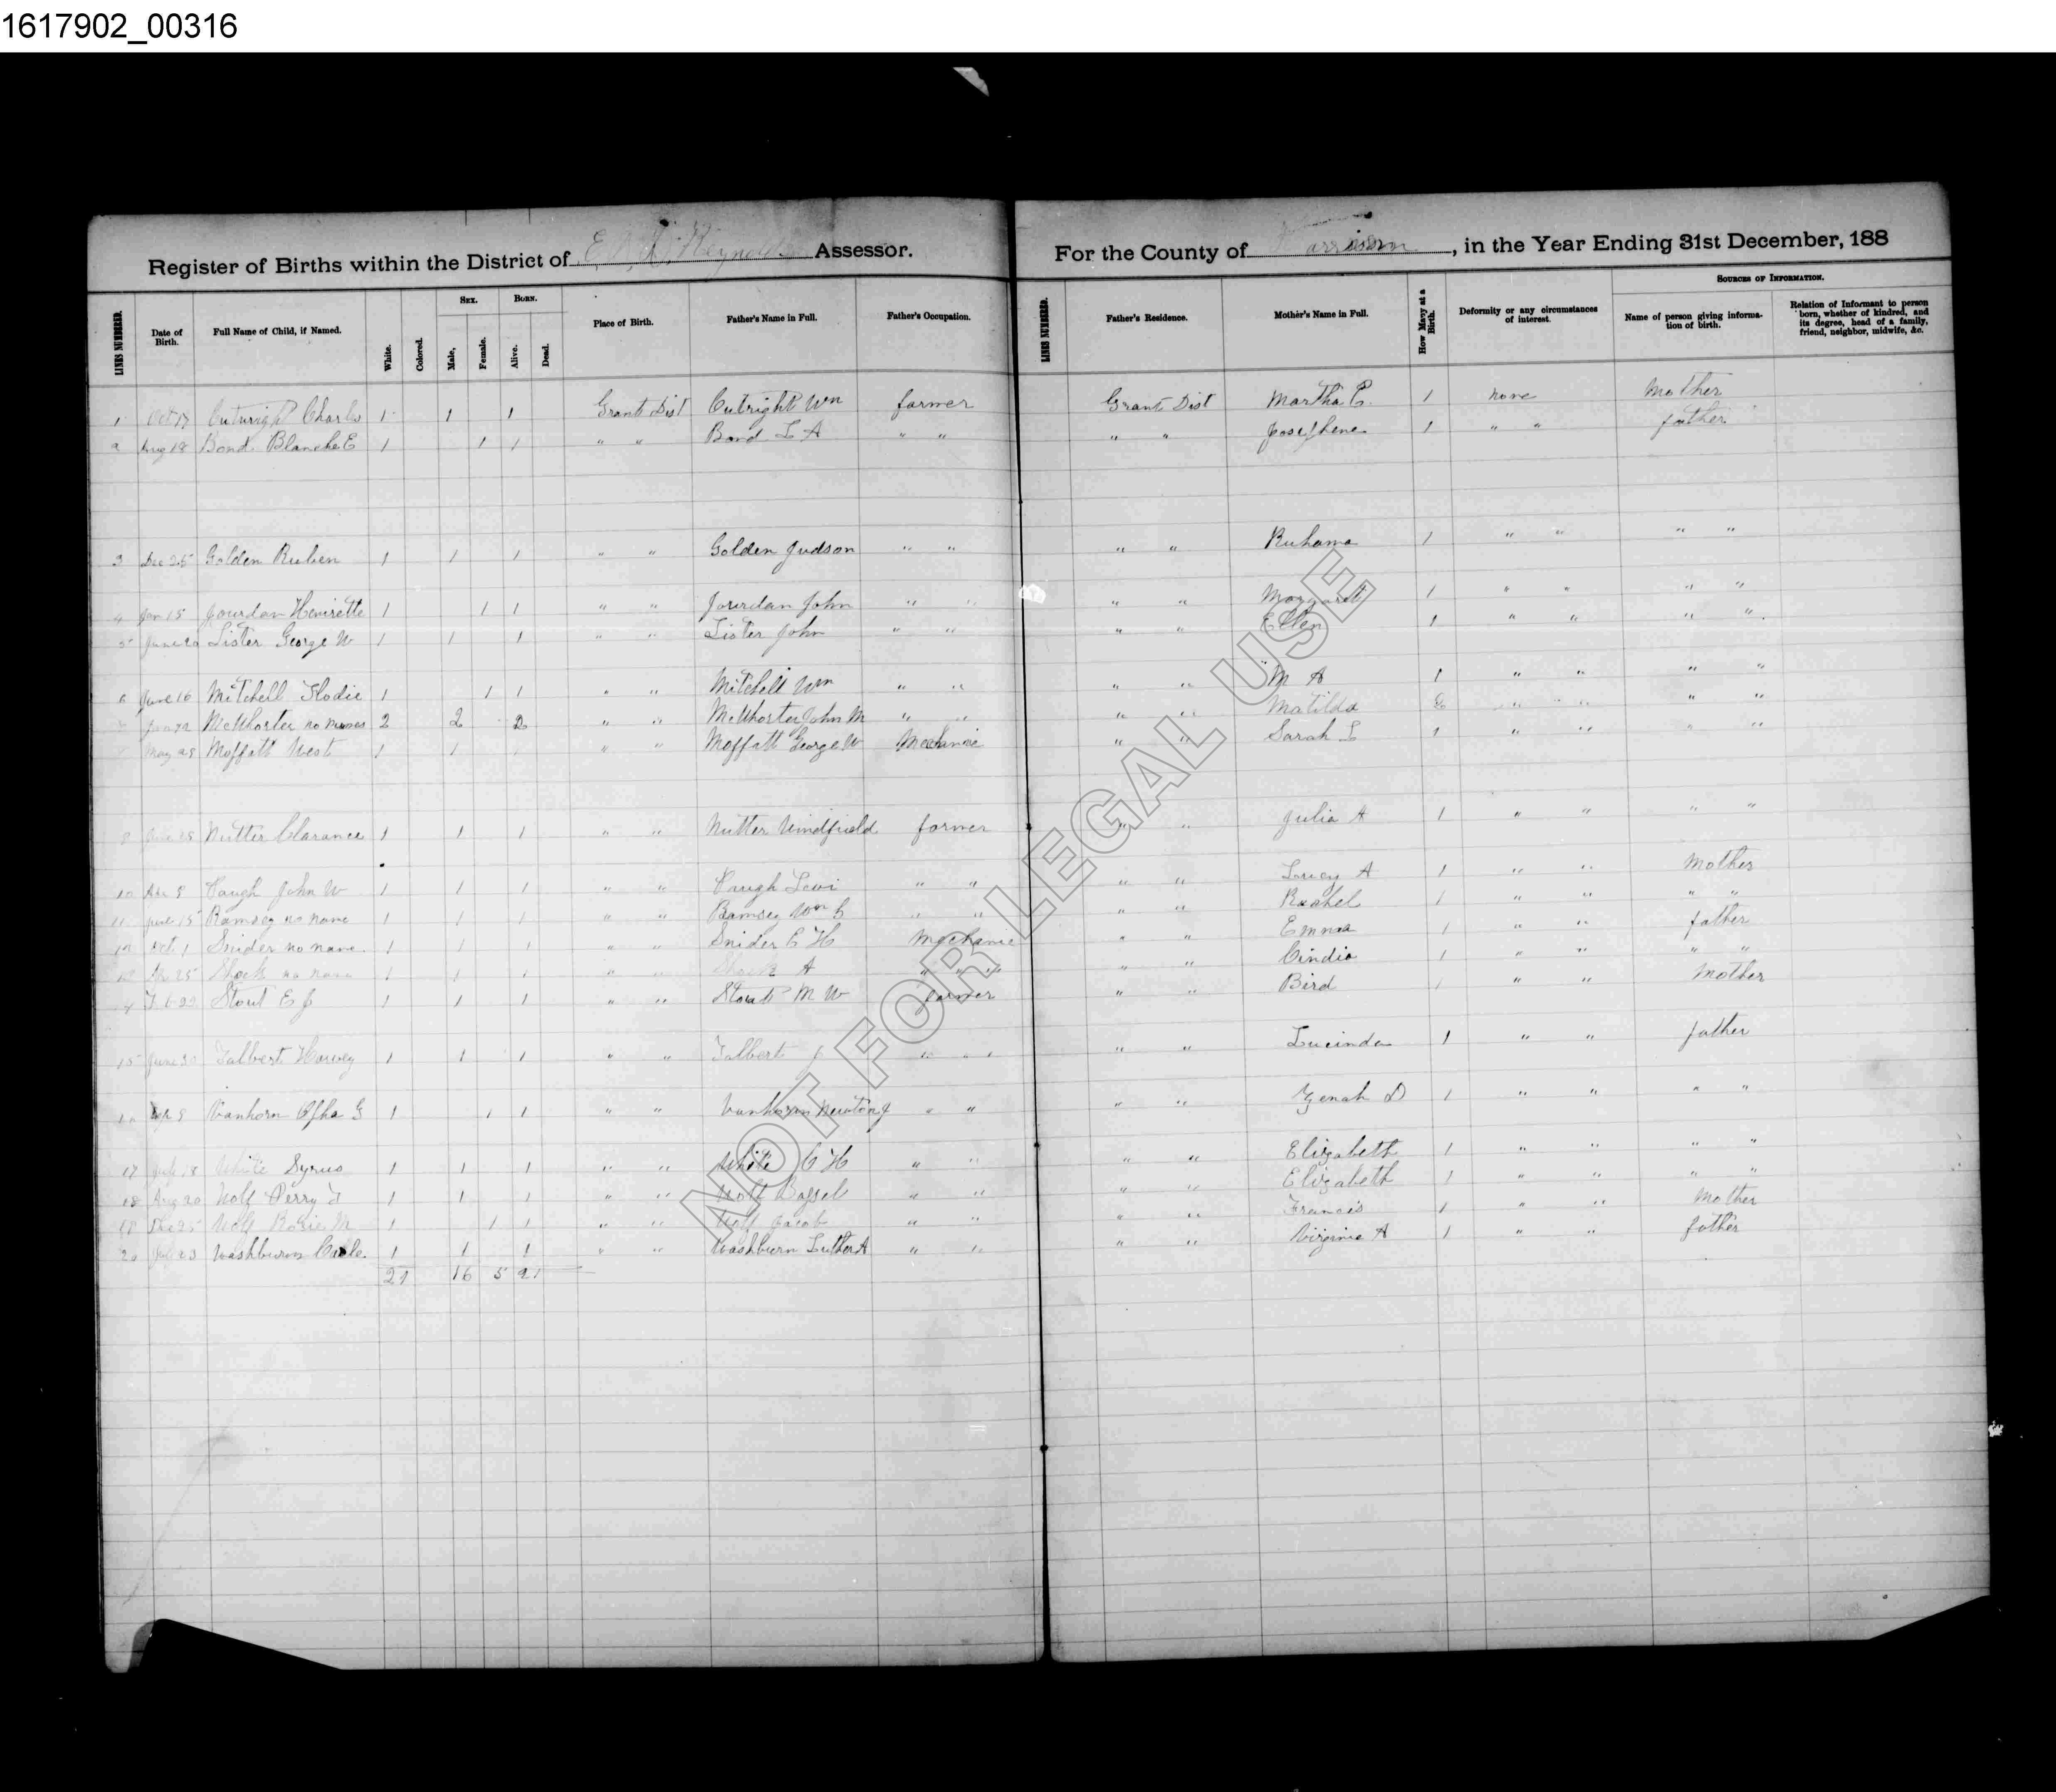 1617902_00316
Register of Births within the District of Reynolds Assessor. For the County of Harrison, in the Year Ending 31st December, 188
LINES NUMBERED. Date of Birth. Full Name of Child, if Named. White. Colored. Sex. Male, Female. Born. Alive. Dead. Place of Birth. Father's Name in Full. Father's Occupation. LINES NUMBERED. Father's Residence. Mother's Name in Full. How Many at a Birth. Deformity or any circumstances of interest. Sources of Information. Name of person giving information of birth. Relation of Informant to person born, whether of kindred, and its degree, head of a family, friend, neighbor, midwife, &c.
1 Oct 17 Cutright Charles 1 1 1 Grant Dist Cutright Wm farmer Grant Dist Martha E. 1 none Mother
2 Aug 18 Bond Blanche E 1 1 1 " " Bond L A " " " " Josephene 1 " " father
3 Dec 25 Golden Ruben 1 1 1 " " Golden Judson " " " " Ruhama 1 " " " "
4 Jan 15 Jourdan Henirette 1 1 1 " " Jourdan John " " " " Margarett 1 " " " "
5 June 20 Lister George W 1 1 1 " " Lister John " " " " Ellen 1 " " " "
6 June 16 Mitchell Flodie 1 1 1 " " Mitchell Wm " " " " M A 1 " " " "
7 McWhorter no names 2 2 2 " " McWhorter John M " " " " Matilda 2 " " " "
May 25 Moffatt West 1 1 1 " " Moffatt George W Mechanic " " Sarah L 1 " " " "
Nutter Clarance 1 1 1 " " Nutter Windfield farmer " " Julia A 1 " " " "
10 Paugh John W 1 1 1 " " Paugh Levi " " " " Lucy A 1 " " Mother
11 June 15 Ramsey no name 1 1 1 " " Ramsey Wm " " " " Rachel 1 " " " "
12 Oct 1 Snider no name 1 1 1 " " Snider C H Mechanic " " Emma 1 " " father
25 Shock no name 1 1 1 " " Shock A " " " " Cindia 1 " " " "
14 Stout E J 1 1 1 " " Stout M W farmer " " Bird 1 " " Mother
15 June 30 Talbert Harvey 1 1 1 " " Talbert J " " " " Lucinda 1 " " father
Vanhorn G 1 1 1 " " Vanhorn Newton J " " " " Zenah D 1 " " " "
17 White Syrus 1 1 1 " " White C H " " " " Elizabeth 1 " " " "
18 Aug 20 Wolf Perry 1 1 1 " " Wolf Bassel " " " " Elizabeth 1 " " " "
Dec 25 Wolf Rosie M 1 1 1 " " Wolf Jacob " " " " Francis 1 " " Mother
20 Washburn 1 1 1 " " Washburn Luther A " " " " Virginia A 1 " " father
21 16 5 21
NOT FOR LEGAL USE